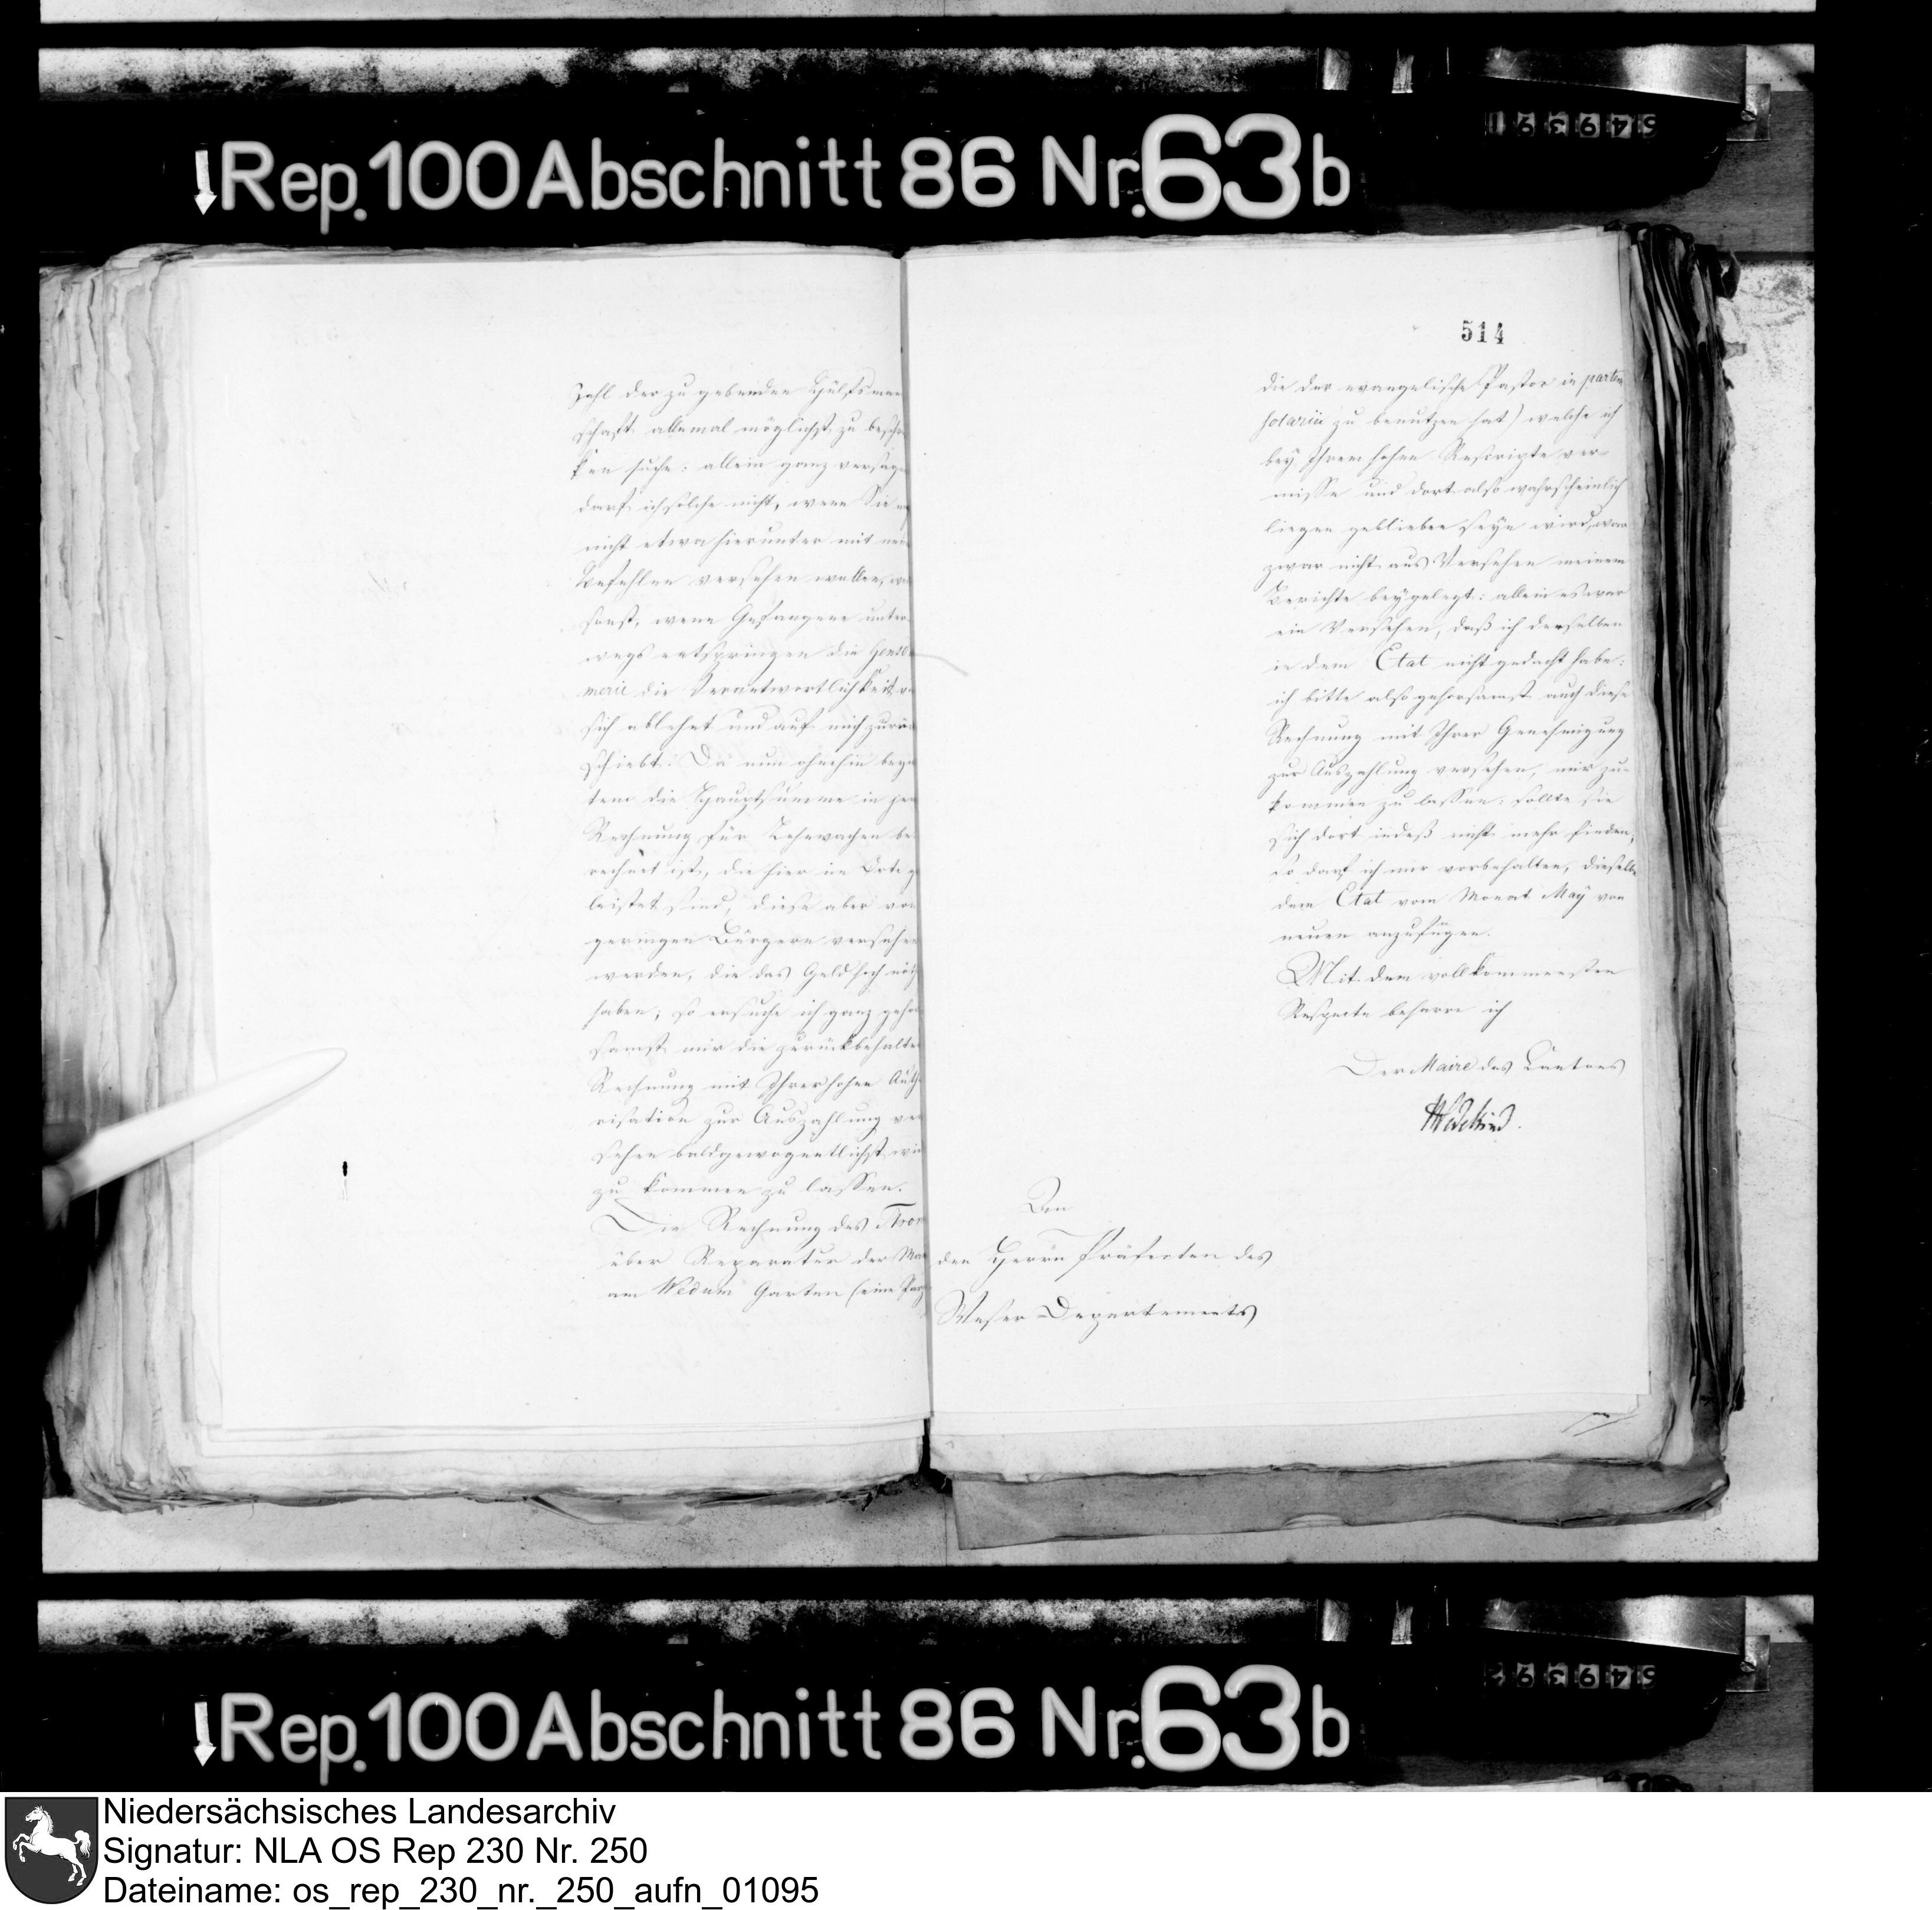 Rep. 100 Abschnitt 86 Nr. 63 b
549391
Zahl der zu gebenden Hülfsman
schaft allemal möglichst zu beschr
ken suche: allein ganz versagen
darf ich solche nicht, wenn Sie m
nicht etwa hierunter mit neu
Befehlen versehen wollen, we
sonst, wenn Gefangene unter
wegs entspringen die Gensd
merie die Verantwortlichkeit v
sich ablehnt und auf mich zurü
schiebt. Da nun ohnehin
die Hauptsumme in
Rechnung für Lehnwachen be
rechnet ist, die hier im Orte g
leistet sind, diese aber von
geringen Bürgern versehen
werden, die das Geld nöth
haben; so ersuche ich ganz gehor
samst mir die zurückbehalten
Rechnung mit Ihrer hohen Auth
risation zur Auszahlung ver
sehen baldgewogentlichst wie
zu kommen zu lassen.
Die Rechnung des
über Reparatur der Mau
am Wedum Garten (eine Par
514
die der evangelische Pastor in partem
solarii zu benutzen hat) welche ich
bey Ihrem hohen Rescripte ver-
misse und dort also wahrscheinlich
liegen geblieben seyn wird, war
zwar nicht aus Versehen meinem
Berichte beygelegt: allein es war
ein Versehen, daß ich derselben
in dem Etat nicht gedacht habe:
ich bitte also gehorsamst auch diese
Rechnung mit Ihrer Genehmigung
zur Auszahlung versehen, mir zu-
kommen zu lassen: sollte sie
sich dort indeß nicht mehr finden;
so darf ich mir vorbehalten, dieselbe
dem Etat vom Monat May von
neuen anzufügen.
Mit dem vollkommensten
Respecte beharre ich
Der Maire des Cantons
Wedekind.
An
den Herrn Präfecten des
Weser-Departements
Rep. 100 Abschnitt 86 Nr. 63 b
549392
Niedersächsisches Landesarchiv
Signatur: NLA OS Rep 230 Nr. 250
Dateiname: os_rep_230_nr._250_aufn_01095